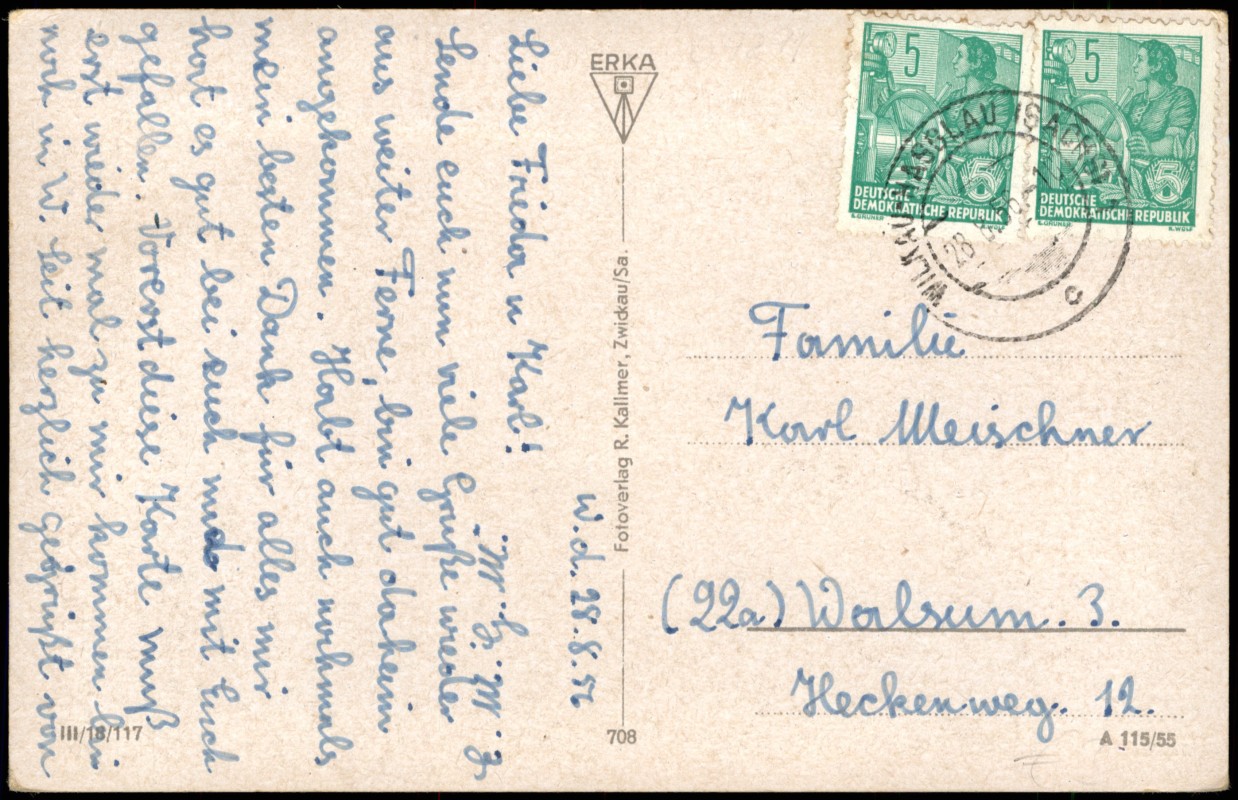 W.d. 28.8.56
Liebe Frieda u Karl!
Sende euch nun viele Grüße wieder
aus weiter Ferne, bin gut daheim
angekommen. Habt auch nochmals
mein besten Dank für alles mir
hat es gut bei euch mit Euch
gefallen. Vorerst diese Karte muß
erst wieder mal zu mir kommen bin
noch in W. Seit herzlich gegrüßt von
III/18/117
ERKA
Fotoverlag R. Kallmer, Zwickau/Sa.
708
5
5
DEUTSCHE
DEMOKRATISCHE REPUBLIK
E.GRUNER
5
5
DEUTSCHE
DEMOKRATISCHE REPUBLIK
E.GRUNER K.WOLF
WILKAU-HASSLAU (SACHS)
c
Familie
Karl Meischner
(22a) Walsum. 3.
Heckenweg. 12.
A 115/55